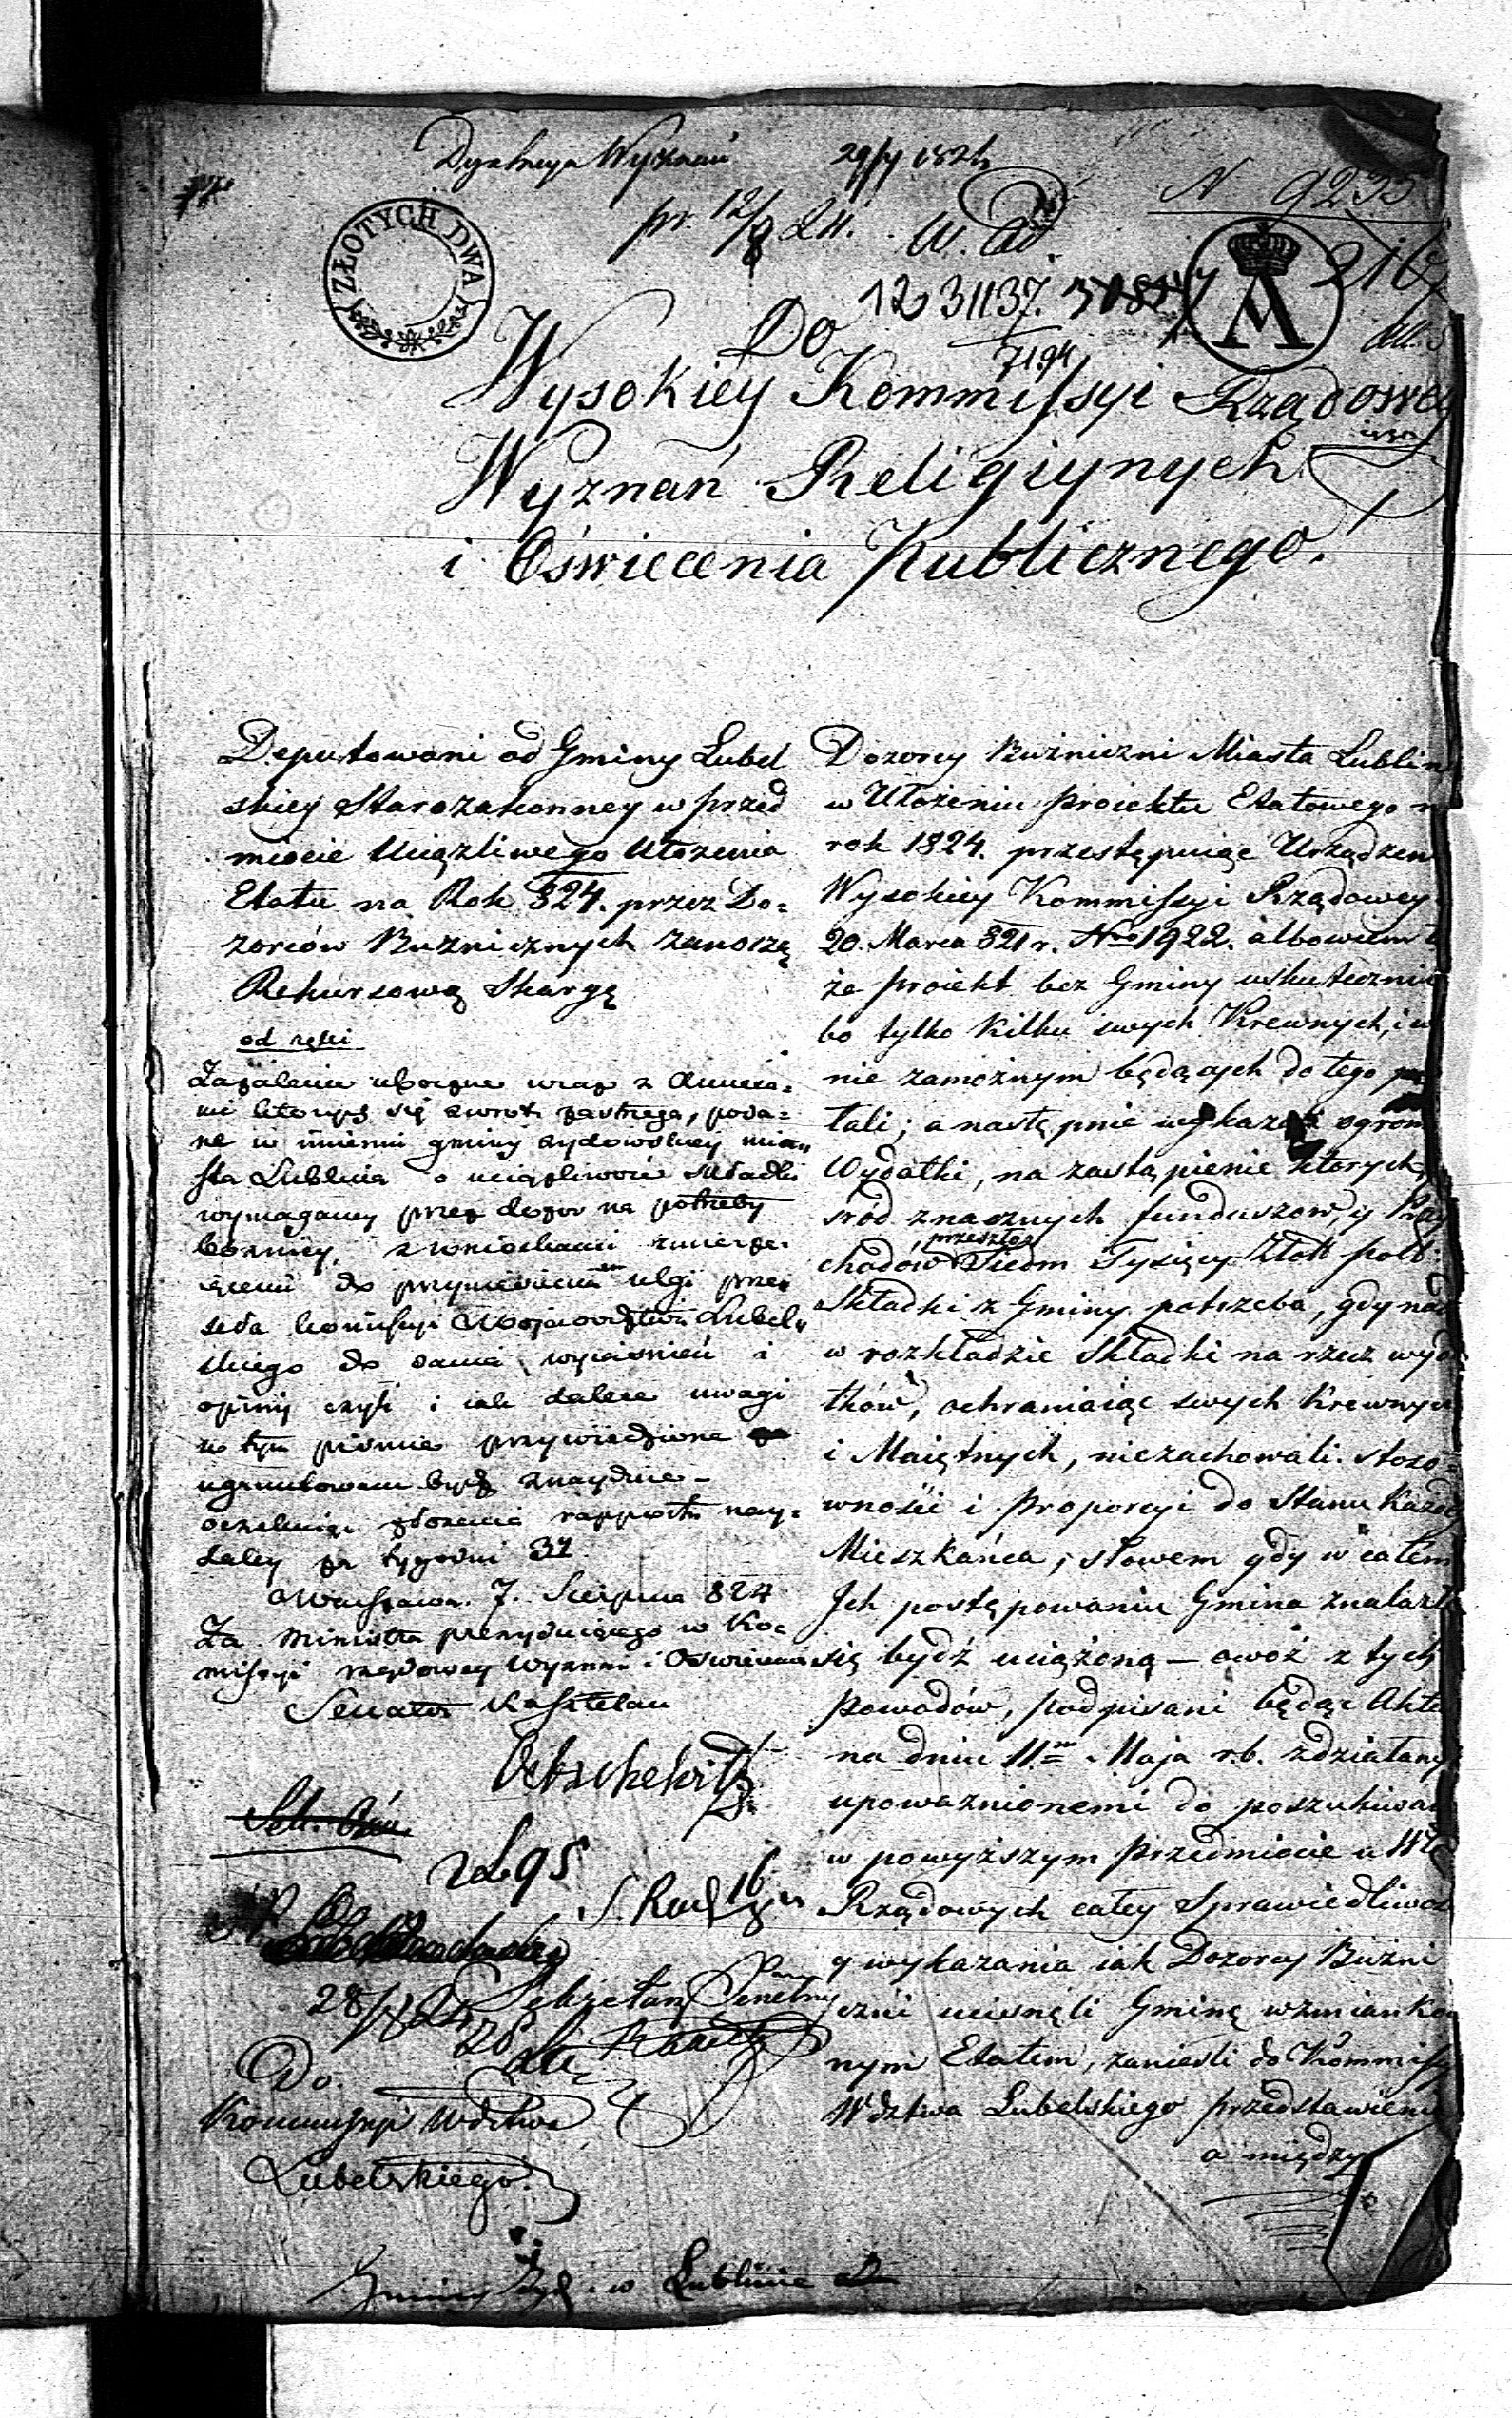 Dyrekcya Wyznań 29/7 1824
N 9235
pr. 12/8 24.
ZŁOTYCH DWA
A
216
1231137.
7194
Do
Wysokiey Kommissyi Rządowey
Wyznań Religiynych
i Oświecenia Publicznego.
Deputowani od Gminy Lubel
skiey Starozakonney w przed
miocie Uciążliwego Ułożenia
Etatu na Rok 824. przez Do=
zorców Bużnicznych zanoszą
Rekursową Skargę
od ręki
Zażalenie uboczne wraz z Annexa=
mi których się zwrot zastrzega, poda=
ne w imieniu gminy żydowskiey mia=
sta Lublina o uciążliwość składki
wymaganey przez dozór na potrzeby
bóżnicy, z wnioskami zmierza=
iącemi do przyniesienia ulgi prze
seła komissyi Woiewództwa Lubel=
skiego do dania wyiaśnień i
opinij czyli i iak dalece uwagi
w tym piśmie przywiedzione
ugruntowane bydź znayduie –
oczekuiąc złożenia rapportu nay=
daley za tygodni 3
Warszawa. 7. Sierpnia 824
Za Ministra prezyduiącego w Ko=
missyi rządowey Wyznań i Oświecenia
Senator Kasztelan
Sekretarz Jeneralny
28/8 24
Do.
Kommissyi Wdztwa
Lubelskiego.
Gminy Żyd. w Lublinie
Dozorcy Bużniczni Miasta Lublin
w Ułożeniu proiektu Etatowego n
rok 1824. przestępuiąc Urządzen
Wysokiey Kommissyi Rządowey
20. Marca 821 r. No 1922. albowiem
że proiekt bez Gminy uskuteczni
bo tylko kilku swych Krewnych, i w
nie zamożnym będących do tego
tali; a następnie wykazali ogrom
Wydatki, na zastąpienie których,
sród znacznych funduszow, y Przy
chodów przeszło Siedm Tysięcy Złott pols:
Składki z Gminy potrzeba, gdy nad
w rozkładzie Składki na rzecz wyda
tków, ochraniaiąc swych Krewnych
i Maiętnych, niezachowali. stoso=
wności i Proporcyi do Stanu Każdeg
Mieszkańca, słowem gdy w całem
Ich postępowaniu Gmina znalazła
się bydź uciążoną – owóż z tych
powodów, podpisani będąc Akte
na dniu 11m Maja r.b. zdziałany
upoważnionemi do poszukiwan
w powyższym Przedmiocie u Wła
Rządowych całey Sprawiedliwoś
y wykazania iak Dozorcy Bużni
czni ucisnęli Gminę wzmianko
nym Etatem, zanieśli do Kommissy
Wdztwa Lubelskiego przedstawienie
a między